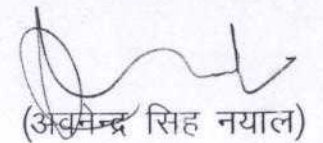 (अवनेन्द्र सिह नयाल)